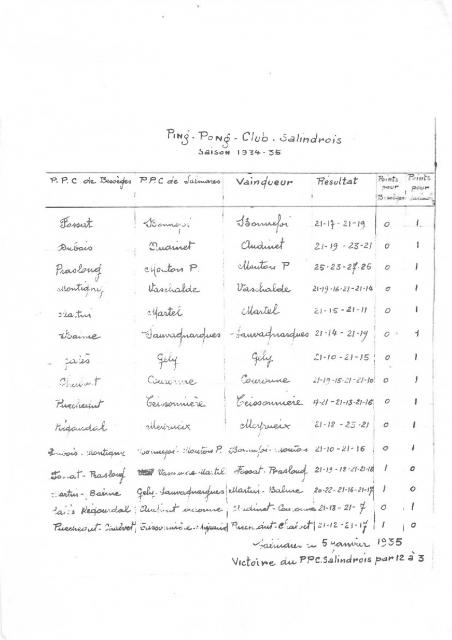 Ping - Pong - Club - Salindrois
Saison 1934-35
P.P.C de Bessèges P.P.C de Salindres Vainqueur Résultat Points pour Bessèges Points pour Salindres
Fossat Bonnefoi Bonnefoi 21-17-21-19 0 1
Dubois Audinet Audinet 21-19-23-21 0 1
Praslong Mouton P. Mouton P 25-23-27-25 0 1
Montigny Vaschalde Vaschalde 21-19-16-21-21-14 0 1
Martin Martel Martel 21-15-21-11 0 1
Sauvagnargues Sauvagnargues 21-14-21-19 0 1
Gely Gely 21-10-21-15 0 1
Couronne Couronne 21-19-15-21-21-10 0 1
Puecheout Teissonnière Teissonnière 21-13-21-16 0 1
Rigoudal Meyrueix Meyrueix 21-18-23-21 0 1
Dubois-Montigny Bonnefoi-Mouton P. Bonnefoi-Mouton 21-10-21-16 0 1
Fossat-Praslong Fossat-Praslong 21-19-18-21-21-18 1 0
Martin-Balme Gely-Sauvagnargues Martin-Balme 20-22-21-16-21-17 1 0
Audinet-Couronne 21-18-21-7 0 1
21-12-21-17 1 0
Salindres le 5 janvier 1935
Victoire du P.P.C.Salindrois par 12 à 3